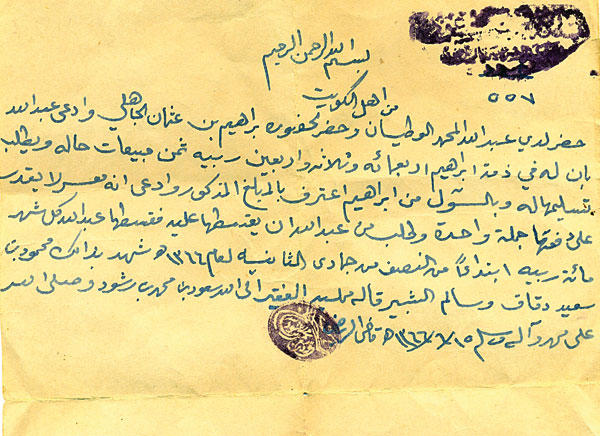 بسم الله الرحمن الرحيم
٥٥٧
من اهل الكويت
حضر لدي عبد الله المحمد الوطبان وحضر لحضوره براهيم بن عثمان الجاهلي وادعى عبد الله
بان له في ذمة ابراهيم اربعمائه وثلاثه واربعين ربيه ثمن مبيعات حاله ويطلب
تسليمها له وبالسؤل من ابراهيم اعترف بالمبلغ المذكور وادعى انه معسر لا يقدر
على دفعها جملة واحدة وطلب من عبد الله ان يقسطها عليه فقسطها عبد الله كل شهر
مائة ربيه ابتداءً من النصف من جمادى الثانيه لعام ١٣٦٦ه شهد بذالك محمود بن
سعيد دقاق وسالم البشير قاله ممليه الفقير الى الله سعود بن محمد بن رشود وصلى الله
على محمد وآله وسلم ١٥/٦/١٣٦٦ه قاضي